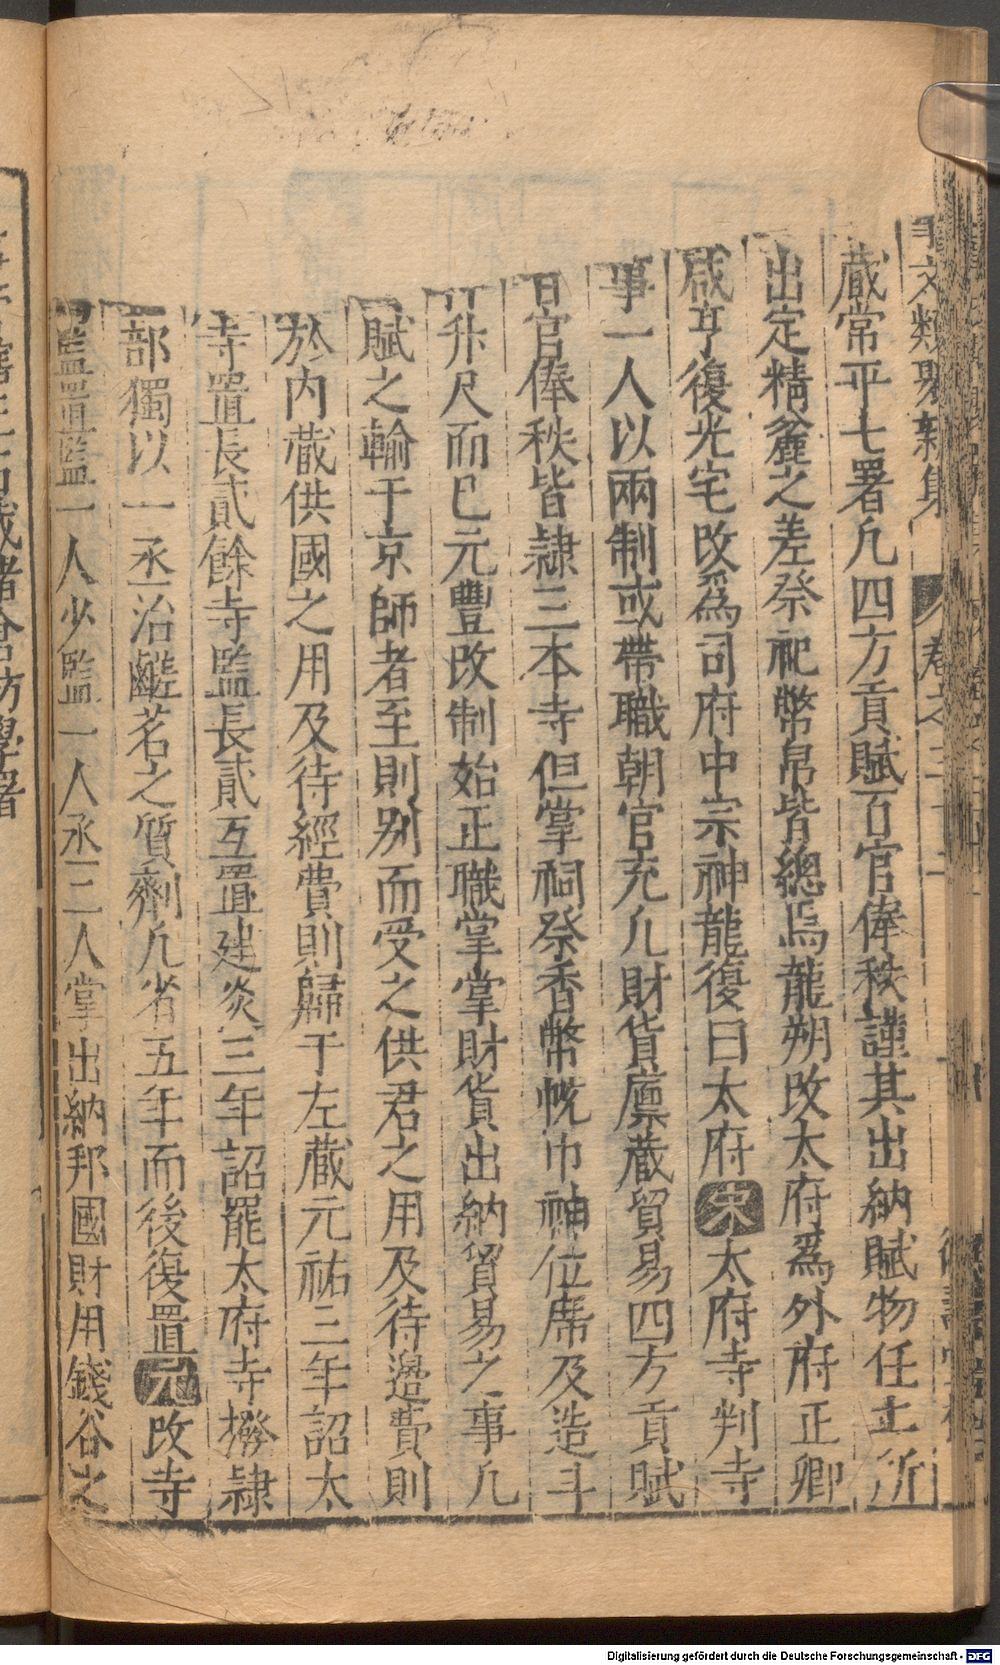 事文類聚新集 卷之三十二
藏常平七署凡四方貢賦百官俸秩謹其出納賦物任土所
出定精麄之差祭祀幣帛皆總焉龍朔改太府爲外府正卿
咸亨復光宅改爲司府中宗神龍復曰太府宋太府寺判寺
事一人以兩制或帶職朝官充凡財貨廪藏貿易四方貢賦
百官俸秩皆隷三本寺但掌祠祭香幣帨巾神位席及造斗
升尺而巳元豐改制始正職掌掌財貨出納貿易之事凡
賦之輸于京師者至則别而受之供君之用及待邉費則
於内藏供國之用及待經費則歸于左藏元祐三年詔太
寺置長貳餘寺監長貳互置建炎三年詔罷太府寺撥隷
部獨以一丞治鹺茗之質劑凡省五年而後復置元改寺
監置監一人少監一人丞二人掌出納邦國財用錢谷之
Digitalisierung gefördert durch die Deutsche Forschungsgemeinschaft - DFG